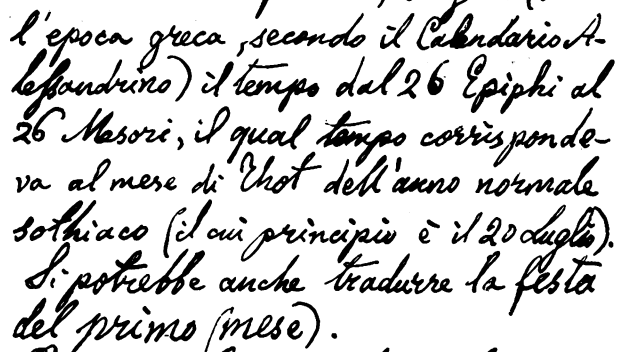 l'epoca greca, secondo il Calendario A-
lessandrino) il tempo dal 26 Epiphi al
26 Mesori, il qual tempo corrisponde-
va al mese di Thot dell'anno normale
sothiaco (il cui principio è il 20 Luglio).
Si potrebbe anche tradurre la festa
del primo (mese).